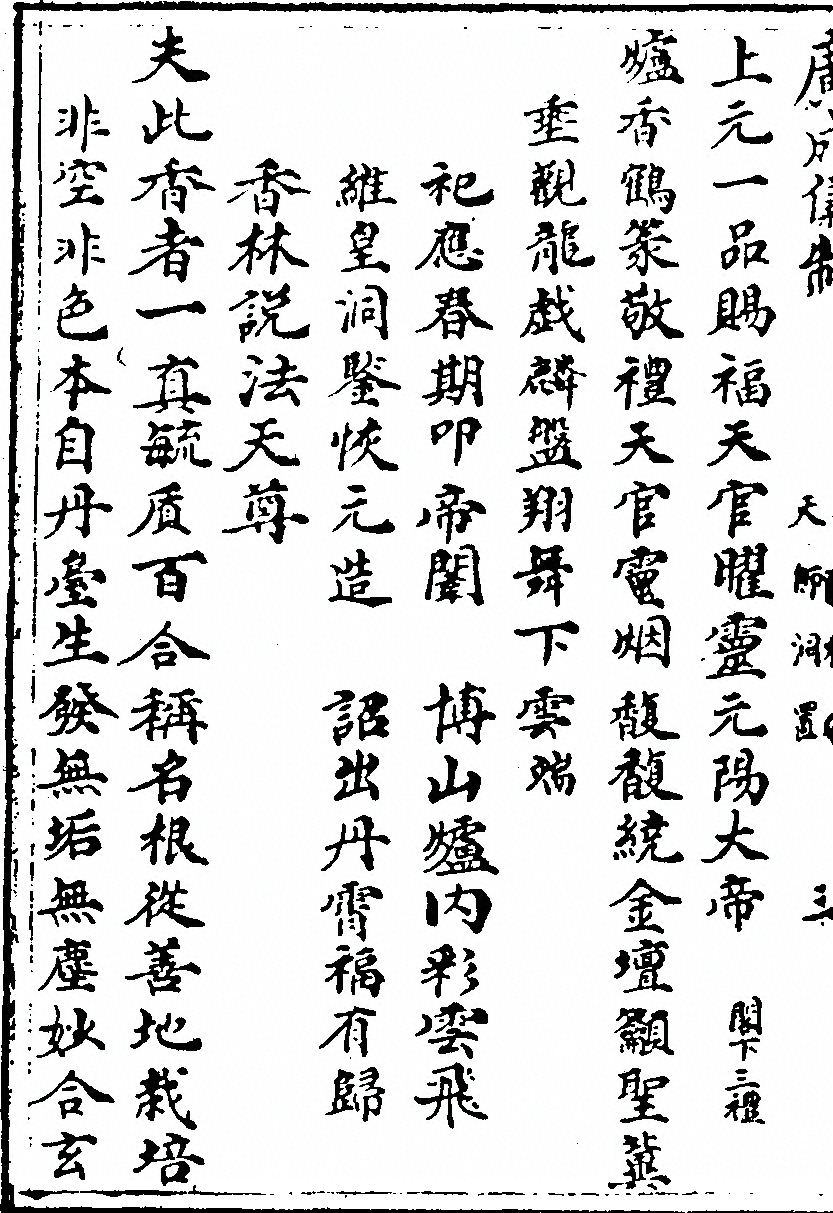 廣成儀制
天師洞置
三
上元一品賜福天官曜靈元陽大帝 閣下三禮
爐香鶴篆敬禮天官電烟馥馥繞金壇籲聖冀
垂觀龍戯麟盤翔舞下雲端
祀應春期叩帝闕 博山爐内彩雲飛
維皇洞鑒恢元造 詔出丹霄福有歸
香林説法天尊
夫此香者一真毓质百合稱名根從善地栽培
非空非色本自丹臺生發無垢無塵妙合玄